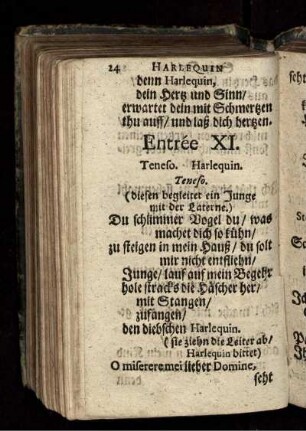 24 HARLEQUIN
denn Harlequin,
dein Hertz und Sinn/
erwartet dein mit Schmertzen
thu auff/ und laß dich hertzen.
Entrée XI.
Teneso. Harlequin.
Teneso.
(diesen begleitet ein Junge
mit der Laterne.)
Du schlimmer Vogel du/ was
machet dich so kühn/
zu steigen in mein Hauß/ du solt
mir nicht entfliehn/
Junge/ lauf auf mein Begehr
hole stracks die Häscher her/
mit Stangen/
zufangen/
den diebschen Harlequin.
(sie ziehn die Leiter ab/
Harlequin bittet)
O miserere mei lieber Domine,
seht